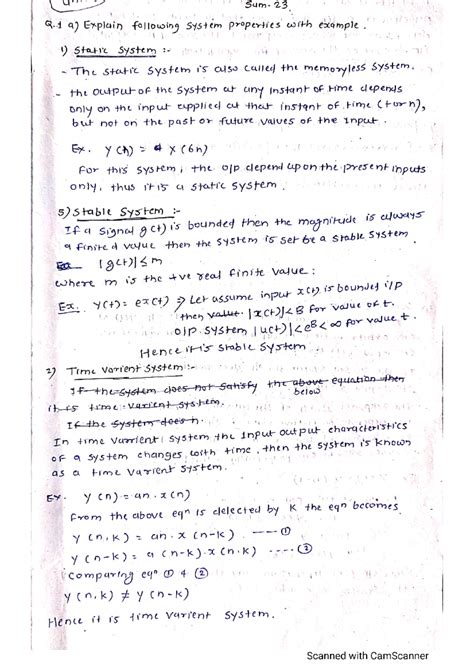 Sum-23
Q.1 a) Explain following system properties with example.
1) Static System :-
- The static system is also called the memoryless system.
- the output of the system at any instant of time depends
only on the input applied at that instant of time (t or n),
but not on the past or future values of the input.
Ex. y(n) = x(6n)
For this system, the o/p depend upon the present inputs
only, thus it is a static system.
5) Stable System :-
If a signal g(t) is bounded then the magnitude is always
a finite d value then the system is set be a stable system
|g(t)| ≤ m
where m is the +ve real finite value :
Ex. y(t) = ex(t) ⇒ Let assume input x(t) is bounded i/p
then value |x(t)| < B for value of t.
o/p system |u(t)| < eB < ∞ for value t.
Hence it is stable system
2) Time Varient System :-
If the system does not satisfy the above equation then
below
it is time varient system.
If the system does n.
In time varrient system the input output characteristics
of a system changes with time, then the system is known
as a time varient system.
Ex. y(n) = an. x(n)
From the above eqn is delected by K the eqn becomes
y(n,k) = an. x(n-k) ---- ①
y(n-k) = a(n-k).x(n-k) ---- ②
comparing eqn ① & ②
y(n,k) ≠ y(n-k)
Hence it is time varient system.
Scanned with CamScanner